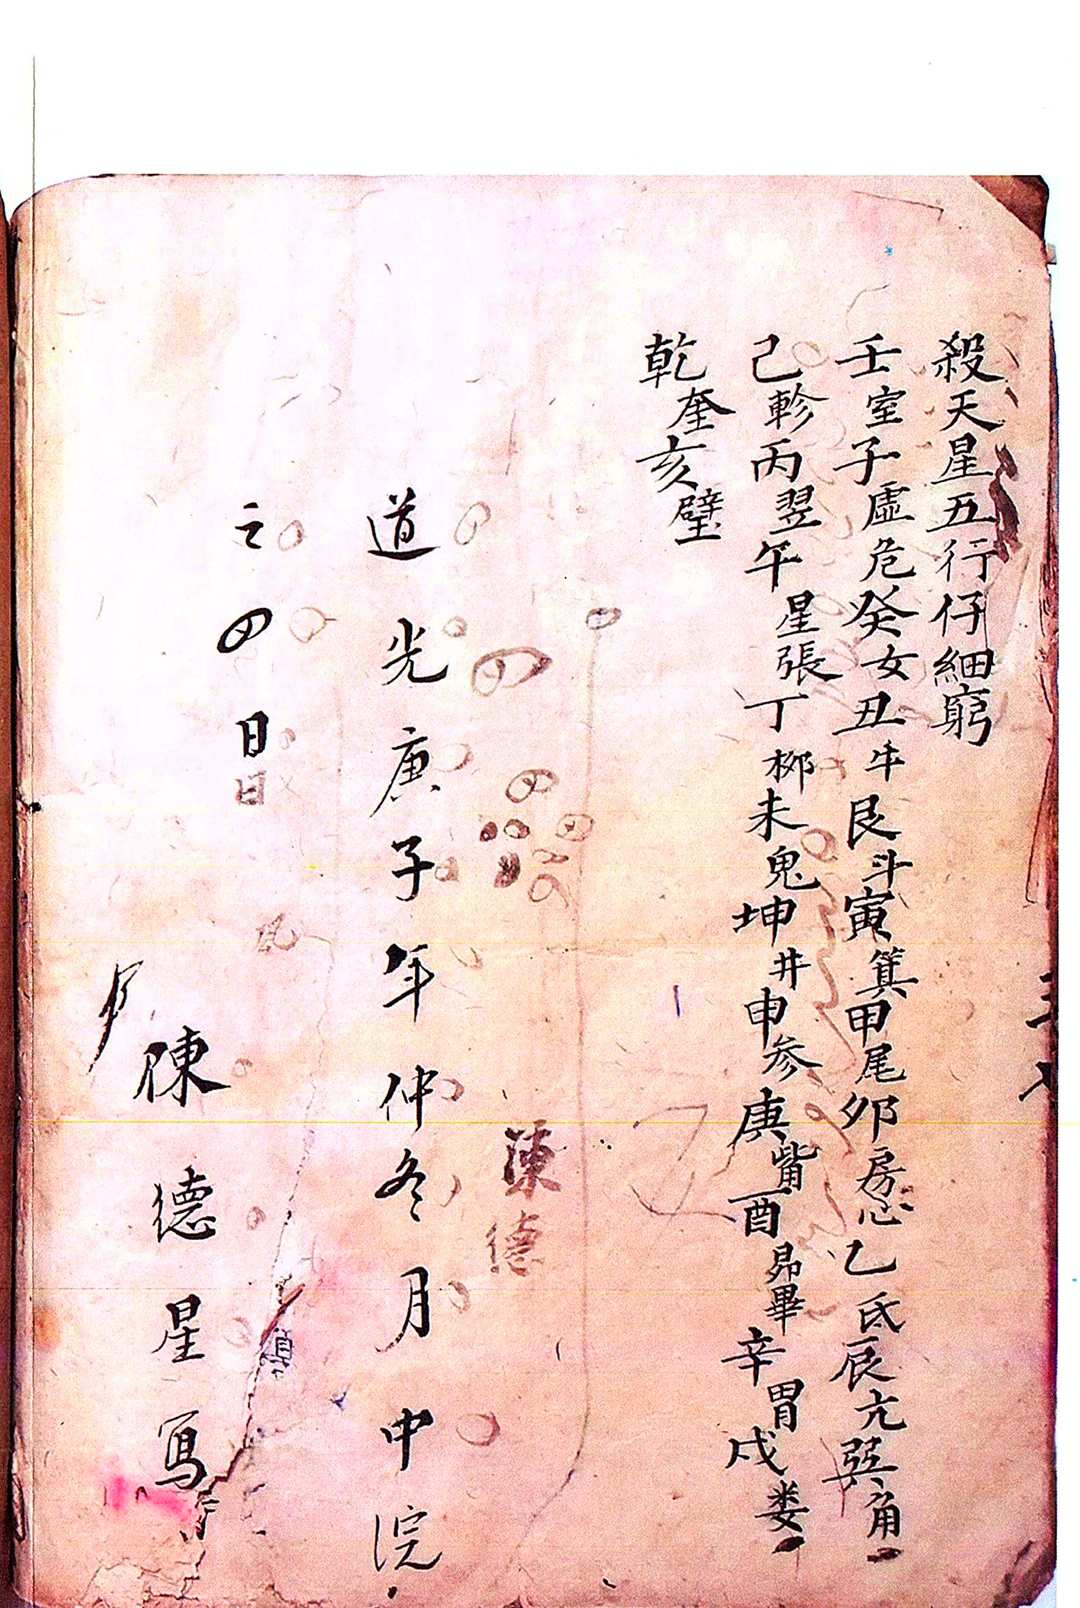 殺天星五行仔細窮
壬室子虛危癸女丑牛艮斗寅箕甲尾卯房心乙氐辰亢巽角
己軫丙翌午星張丁柳未鬼坤井申参庚觜酉昴畢辛胃戌娄
乾奎亥壁
陳德
道光庚子年仲冬月中浣
之四日
日
陳德星寫